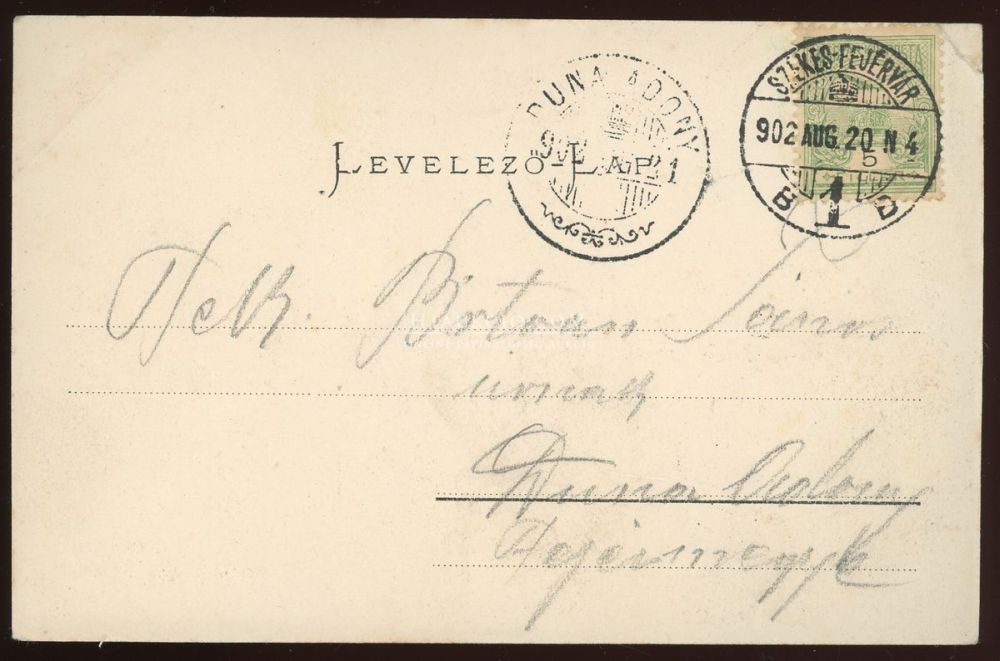 SZÉKES-FEJÉRVÁR
902 AUG. 20 N 4
5
B 1 D
DUNA ADONY
902 21
LEVELEZŐ-LAP.
Tek. Birtvan János
urnak
Duna Adony
Fejérmegye